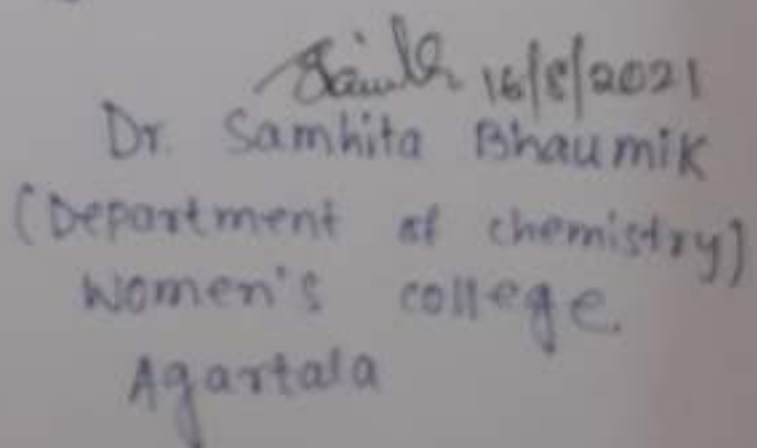 16/8/2021
Dr. Samhita Bhaumik
(Department of chemistry)
Women's college.
Agartala